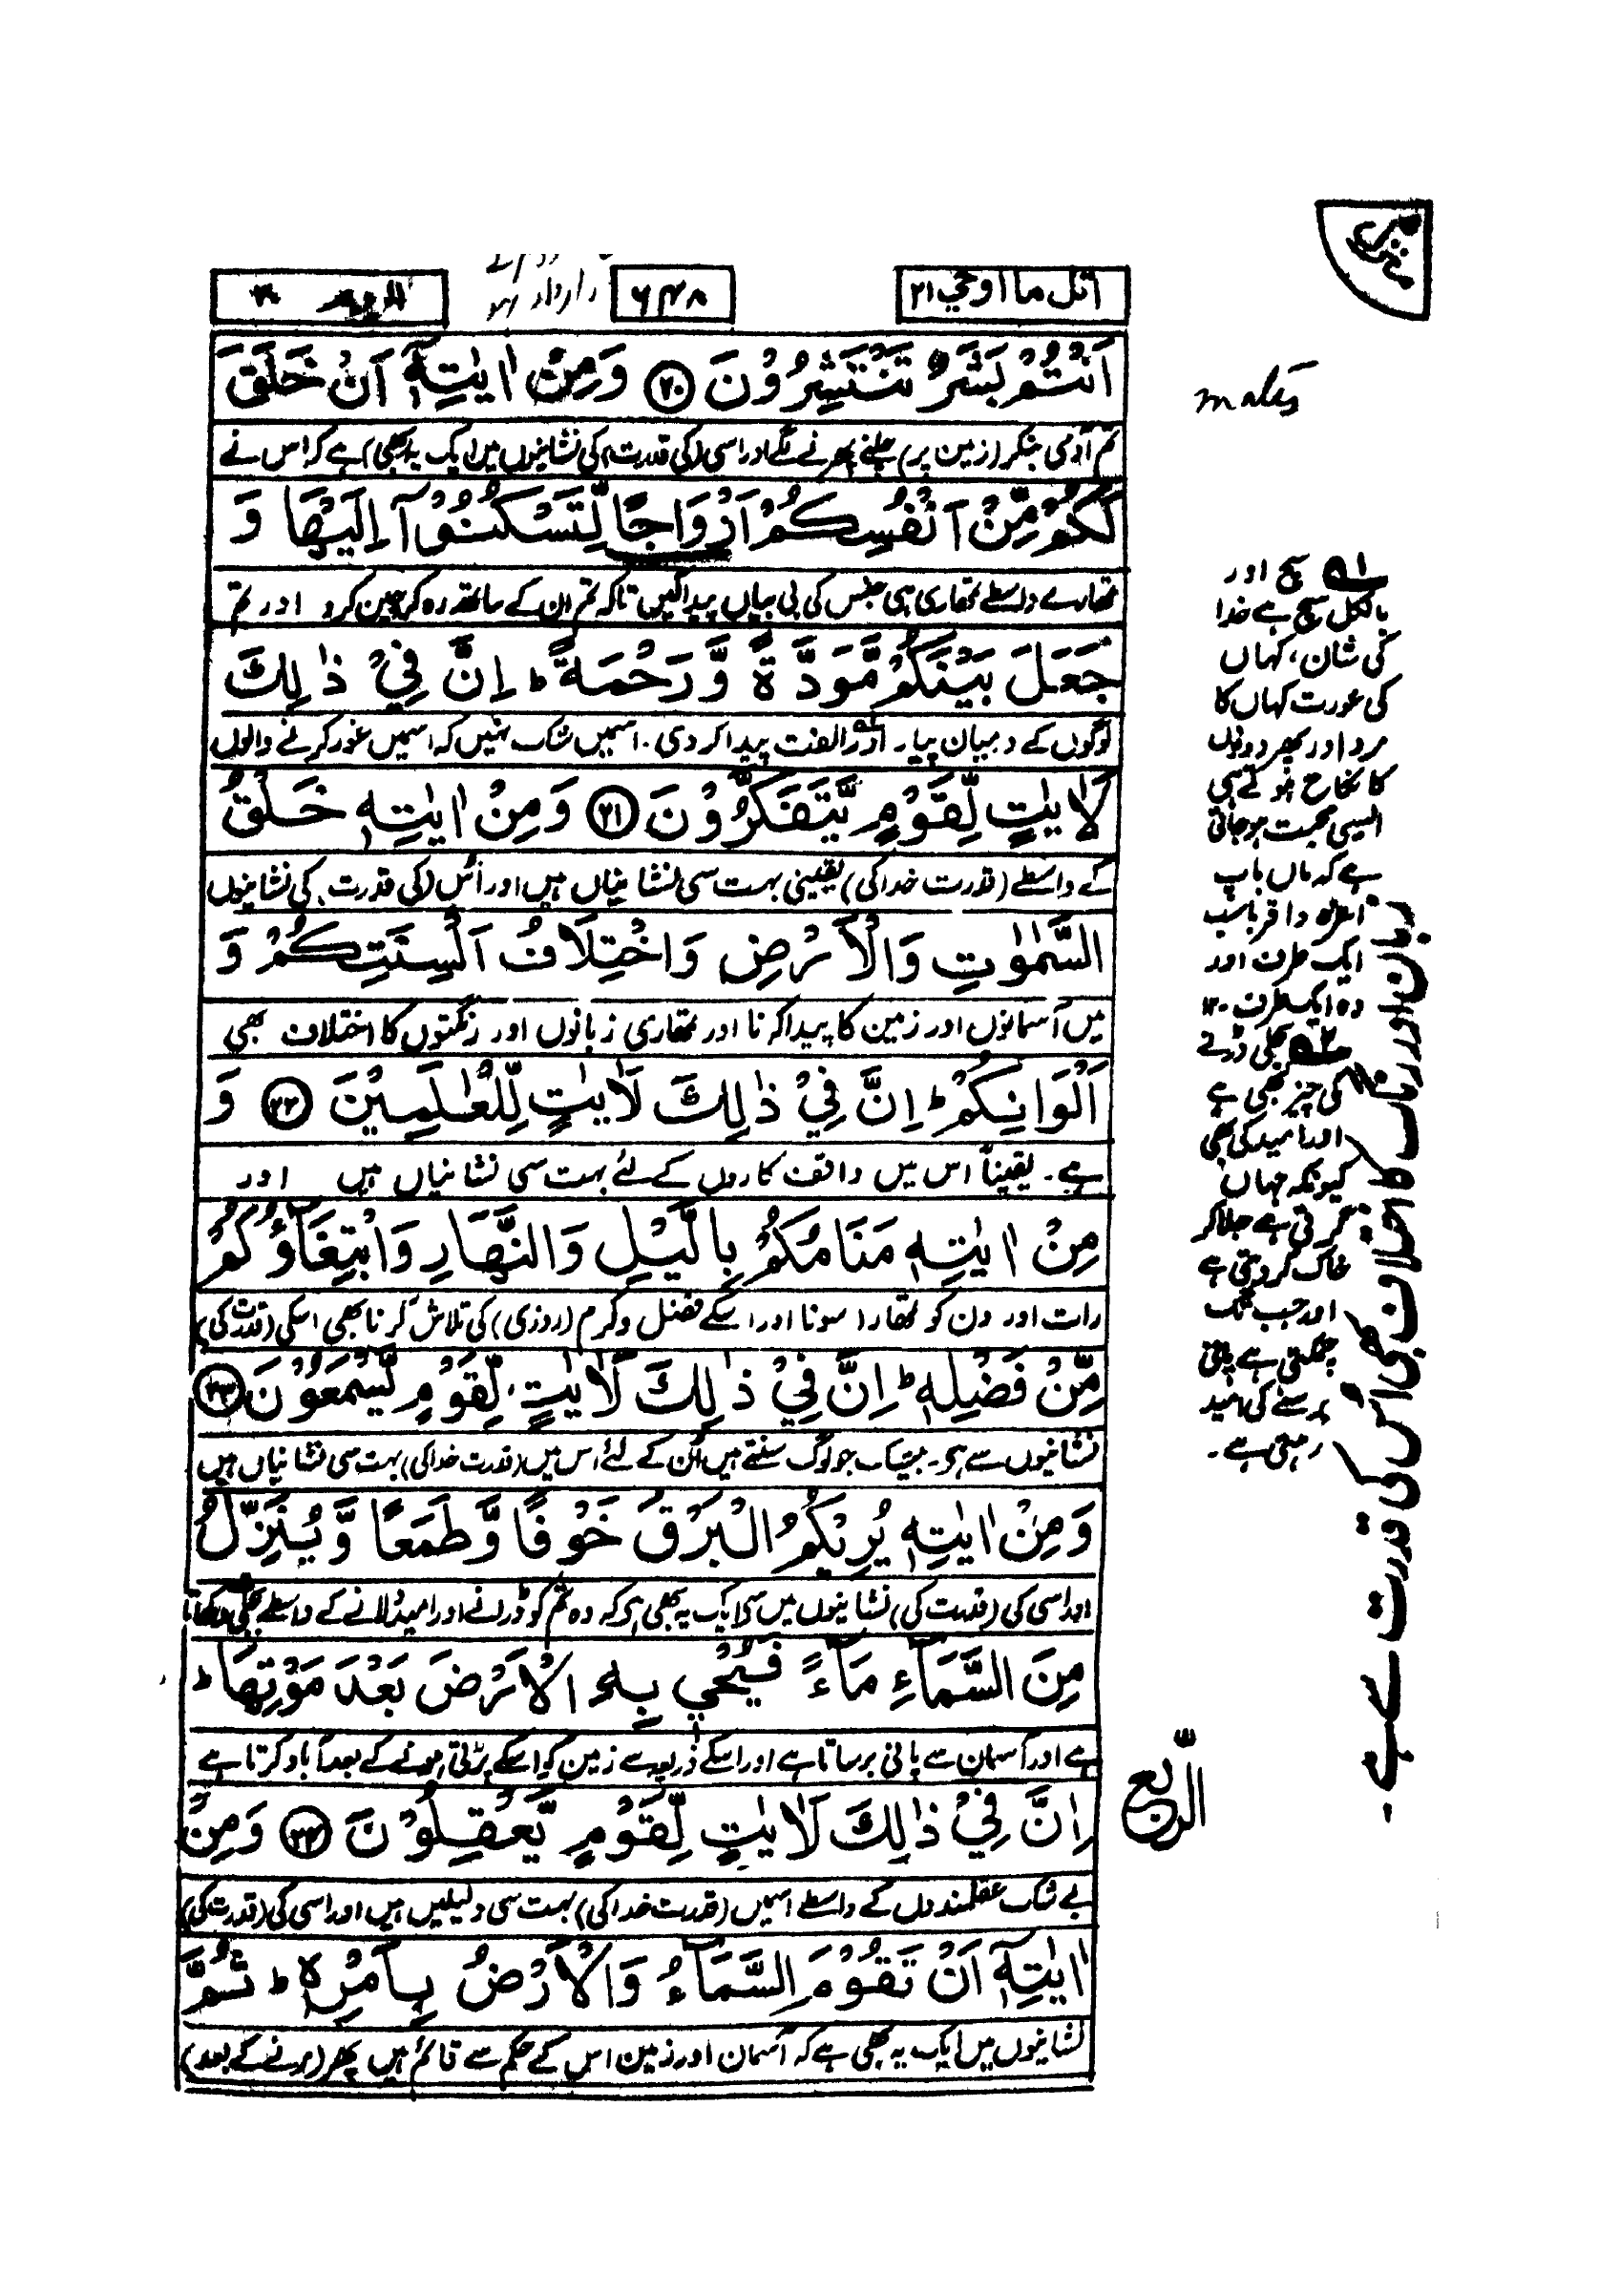 اتل ما اوحي ٢١
٦٤٨
الروم ٣٠
اَنْتُمْ بَشَرٌ تَنْتَشِرُوْنَ ﴿٢٠﴾ وَمِنْ اٰيٰتِهٖۤ اَنْ خَلَقَ
تم آدمی بنکر (زمین پر) چلنے پھرنے لگے اور اسی (کی قدرت) کی نشانیوں میں ایک یہ (بھی) ہے کہ اس نے
لَكُمْ مِّنْ اَنْفُسِكُمْ اَزْوَاجًا لِّتَسْكُنُوْۤا اِلَيْهَا وَ
تمھارے واسطے تمھاری ہی جنس کی بی بیاں پیدا کیں تاکہ تم ان کے ساتھ رہ کر چین کرو اور تم
جَعَلَ بَيْنَكُمْ مَّوَدَّةً وَّرَحْمَةً ؕ اِنَّ فِيْ ذٰلِكَ
لوگوں کے درمیان پیار اور الفت پیدا کر دی۔ اسمیں شک نہیں کہ اسمیں غور کرنے والوں
لَاٰيٰتٍ لِّقَوْمٍ يَّتَفَكَّرُوْنَ ﴿٢١﴾ وَمِنْ اٰيٰتِهٖ خَلْقُ
کے واسطے (قدرت خدا کی) یقینی بہت سی نشانیاں ہیں اور اُس (کی قدرت) کی نشانیوں
السَّمٰوٰتِ وَالْاَرْضِ وَاخْتِلَافُ اَلْسِنَتِكُمْ وَ
میں آسمانوں اور زمین کا پیدا کرنا اور تمھاری زبانوں اور رنگتوں کا اختلاف بھی
اَلْوَانِكُمْ ؕ اِنَّ فِيْ ذٰلِكَ لَاٰيٰتٍ لِّلْعٰلَمِيْنَ ﴿٢٢﴾ وَ
ہے۔ یقیناً اس میں واقف کاروں کے لئے بہت سی نشانیاں ہیں اور
مِنْ اٰيٰتِهٖ مَنَامُكُمْ بِالَّيْلِ وَالنَّهَارِ وَابْتِغَآؤُكُمْ
رات اور دن کو تمھارا سونا اور اسکے فضل و کرم (روزی) کی تلاش کرنا بھی اسکی (قدرت کی)
مِّنْ فَضْلِهٖ ؕ اِنَّ فِيْ ذٰلِكَ لَاٰيٰتٍ لِّقَوْمٍ يَّسْمَعُوْنَ ﴿٢٣﴾
نشانیوں سے ہے۔ بیشک جو لوگ سنتے ہیں اُن کے لئے اس میں (قدرت خدا کی) بہت سی نشانیاں ہیں
وَمِنْ اٰيٰتِهٖ يُرِيْكُمُ الْبَرْقَ خَوْفًا وَّطَمَعًا وَّيُنَزِّلُ
اور اسی کی (قدرت کی) نشانیوں میں سے ایک یہ بھی ہے کہ وہ تم کو ڈرانے اور امید دلانے کے واسطے بجلی دکھاتا
مِنَ السَّمَآءِ مَآءً فَيُحْيٖ بِهِ الْاَرْضَ بَعْدَ مَوْتِهَا ؕ
ہے اور آسمان سے پانی برساتا ہے اور اسکے ذریعہ سے زمین کو اسکے پڑتی ہونے کے بعد آباد کرتا ہے
اِنَّ فِيْ ذٰلِكَ لَاٰيٰتٍ لِّقَوْمٍ يَّعْقِلُوْنَ ﴿٢٤﴾ وَمِنْ
بے شک عقلمندوں کے واسطے اسمیں (قدرت خدا کی) بہت سی دلیلیں ہیں اور اسی کی (قدرت کی)
اٰيٰتِهٖۤ اَنْ تَقُوْمَ السَّمَآءُ وَالْاَرْضُ بِاَمْرِهٖ ؕ ثُمَّ
نشانیوں میں ایک یہ بھی ہے کہ آسمان اور زمین اس کے حکم سے قائم ہیں پھر (مرنے کے بعد)
males
١ سچ اور
بالکل سچ ہے خدا
کی شان، کہاں
کی عورت کہاں کا
مرد اور پھر دونوں
کا نکاح ہوتے ہی
ایسی محبت ہو جاتی
ہے کہ ماں باپ
اعزہ و اقربا سب
ایک طرف اور
وہ ایک طرف ۱۲۔
٢ بجلی ڈرنے
کی چیز بھی ہے
اور امید کی بھی
کیونکہ جہاں
گرتی ہے جلا کر
خاک کر دیتی ہے
اور جب تک
چمکتی ہے پانی
برسنے کی امید
رہتی ہے۔
زبان اور رنگ کا اختلاف بھی اُس کی قدرت سے ہے۔
الرّبع